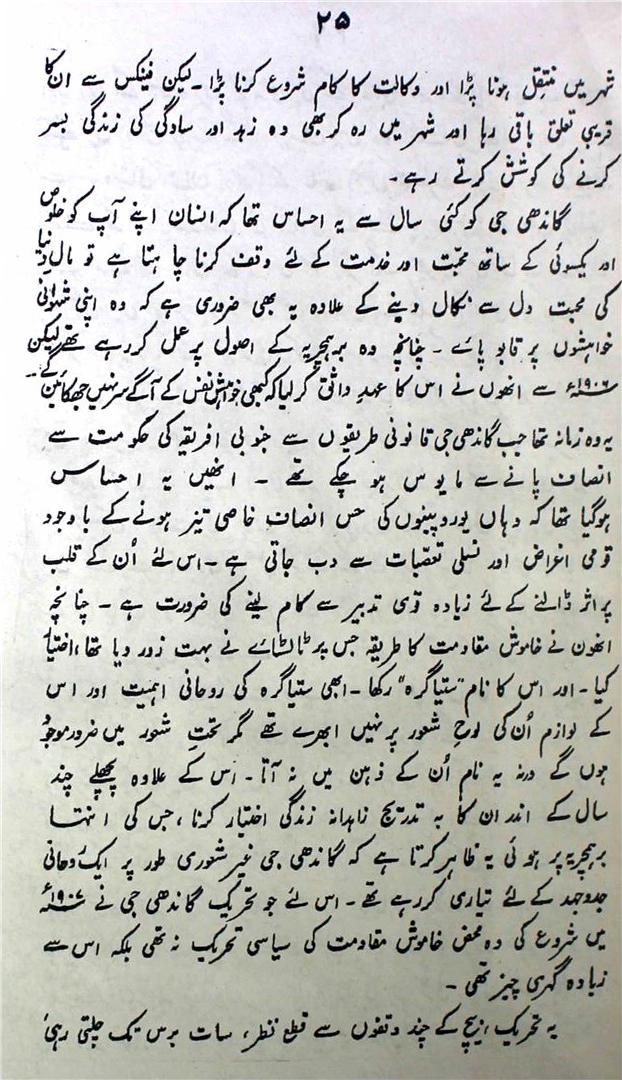 ۲۵
شہر میں منتقل ہونا پڑا اور وکالت کا کام شروع کرنا پڑا ۔ لیکن فینکس سے ان کا
قریبی تعلق باقی رہا اور شہر میں رہ کر بھی وہ زہد اور سادگی کی زندگی بسر
کرنے کی کوشش کرتے رہے ۔
گاندھی جی کو کئی سال سے یہ احساس تھا کہ انسان اپنے آپ کو خلوص
اور یکسوئی کے ساتھ محبت اور خدمت کے لئے وقف کرنا چاہتا ہے تو مال دنیا
کی محبت دل سے نکال دینے کے علاوہ یہ بھی ضروری ہے کہ وہ اپنی شہوانی
خواہشوں پر قابو پائے ۔ چنانچہ وہ برہمچریہ کے اصول پر عمل کر رہے تھے لیکن
۱۹۰۶ء سے انھوں نے اس کا عہد واثق کر لیا کہ کبھی خواہش نفس کے آگے سر نہیں جھکائیں گے ۔
یہ وہ زمانہ تھا جب گاندھی جی قانونی طریقوں سے جنوبی افریقہ کی حکومت سے
انصاف پانے سے مایوس ہو چکے تھے ۔ انھیں یہ احساس
ہو گیا تھا کہ وہاں یوروپینوں کی حس انصاف خاصی تیز ہونے کے باوجود
قومی اغراض اور نسلی تعصبات سے دب جاتی ہے ۔ اس لئے اُن کے قلب
پر اثر ڈالنے کے لئے زیادہ قوی تدبیر سے کام لینے کی ضرورت ہے ۔ چنانچہ
انھوں نے خاموش مقاومت کا طریقہ جس پر ٹالسٹائے نے بہت زور دیا تھا، اختیار
کیا ۔ اور اس کا نام "ستیاگرہ" رکھا ۔ ابھی ستیاگرہ کی روحانی اہمیت اور اس
کے لوازم اُن کی لوحِ شعور پر نہیں ابھرے تھے مگر تحتِ شعور میں ضرور موجود
ہوں گے ورنہ یہ نام اُن کے ذہن میں نہ آتا ۔ اس کے علاوہ پچھلے چند
سال کے اندر ان کا بہ تدریج زاہدانہ زندگی اختیار کرنا ، جس کی انتہا
برہمچریہ پر ہوئی یہ ظاہر کرتا ہے کہ گاندھی جی غیر شعوری طور پر ایک روحانی
جدوجہد کے لئے تیاری کر رہے تھے ۔ اس لئے جو تحریک گاندھی جی نے ۱۹۰۷ء
میں شروع کی وہ محض خاموش مقاومت کی سیاسی تحریک نہ تھی بلکہ اس سے
زیادہ گہری چیز تھی ۔
یہ تحریک ، بیچ کے چند وقفوں سے قطع نظر، سات برس تک چلتی رہی ،